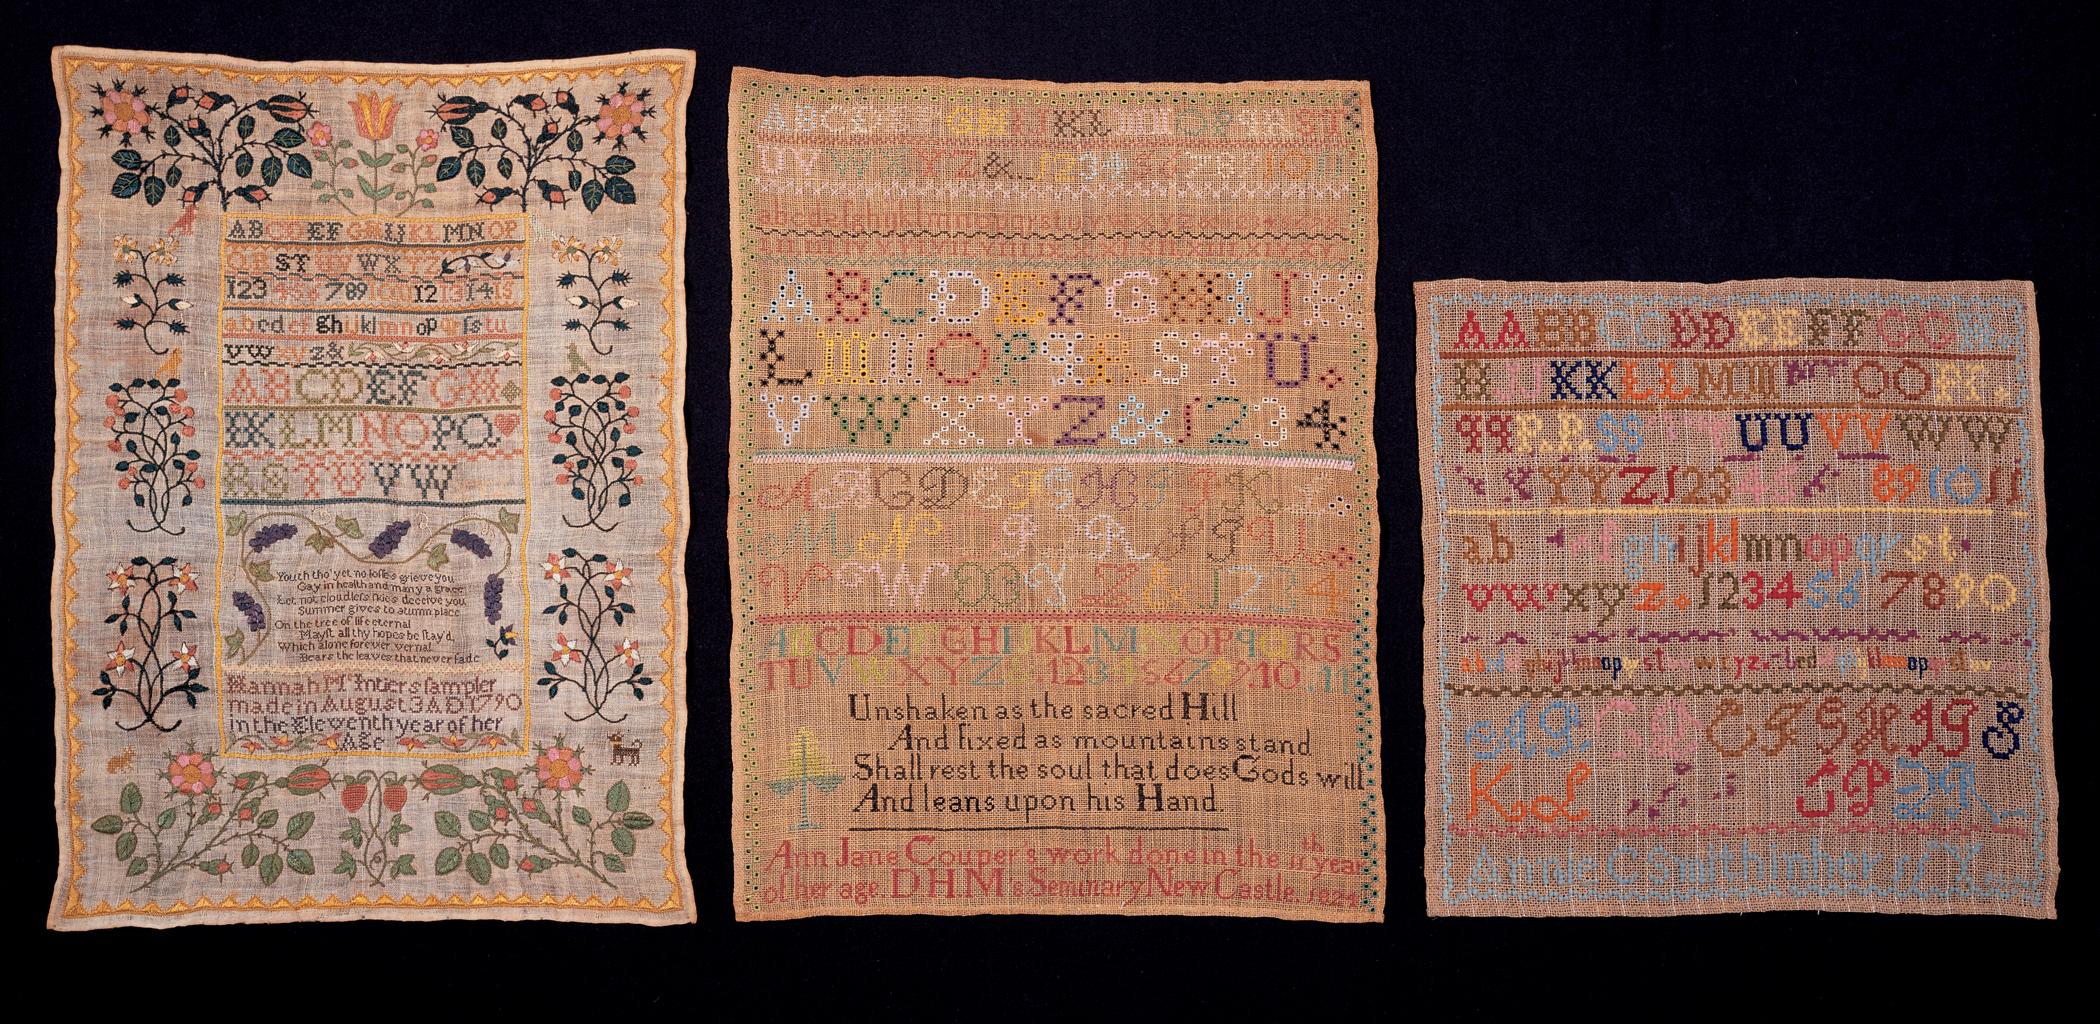 ABCD EF GHIJKLMN OP
QR ST UV WX YZ
123 456 789 10 11 12 13 14 15
abcdef ghijklmnopqrſstu
vwxyz&
ABCDEFGH
IKLMNOPQ
RSTUVW
Youth tho' yet no loſſes grieve you
Gay in health and many a grace
Let not cloudleſs skies deceive you
Summer gives to autumn place
On the tree of life eternal
Mayſt all thy hopes be ſtay'd
Which alone forever vernal
Bears the leaves that never fade
Hannah Mc Intiers ſampler
made in August 3 AD 1790
in the Eleventh year of her
Age
ABCDEFGHIJKLMNOPQRST
UVWXYZ&.. 1234567891011
ABCDEFGHIJK
LMNOPQRSTU
VWXYZ&1234
ABCDEFGHIJKL
MN P R S T U
VWXYZ& 1234
ABCDEFGHIJKLMNOPQRS
TUVWXYZ&.123456789.10.11
Unshaken as the sacred Hill
And fixed as mountains stand
Shall rest the soul that does Gods will
And leans upon his Hand.
Ann Jane Couper's work done in the 11th year
of her age D H. Ms Seminary New Castle. 1824
AABBCCDDEEFFGGH
H IJ KK LL MM NN OO PP
qq R.R. SS TT UU VV WW
X X YY Z 123 456 89 10 11
ab f ghijklmnopqr st
vwxyz 123456 7890
K L
Annie C Smith in her 11th Y